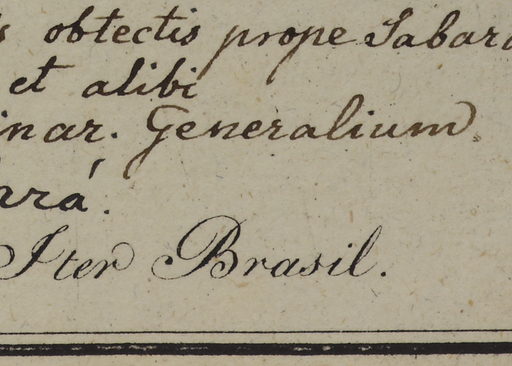 s obtectis prope Sabará
et alibi
inar. Generalium
ará.
Iter Brasil.